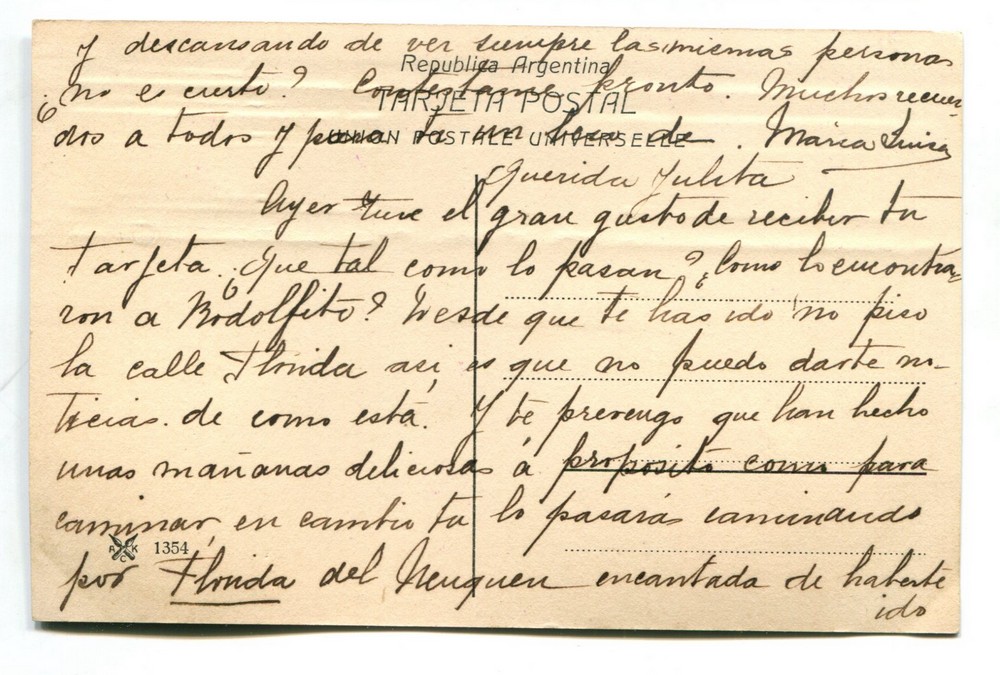 y descansando de ver siempre las mismas personas
Republica Argentina
¿no es cierto? Contestame pronto. Muchos recuer-
TARJETA POSTAL
dos a todos y para ti un beso de . María Luisa
UNION POSTALE UNIVERSELLE
Querida Julita
Ayer tuve el gran gusto de recibir tu
tarjeta. ¿Que tal como lo pasan? ¿Como lo encontra-
ron a Rodolfito? Desde que te has ido no piso
la calle Florida así es que no puedo darte no-
ticias de como está. Y te prevengo que han hecho
unas mañanas deliciosas a proposito como para
caminar, en cambio tu lo pasarás caminando
A K C 1354
por Florida del Neuquen encantada de haberte
ido